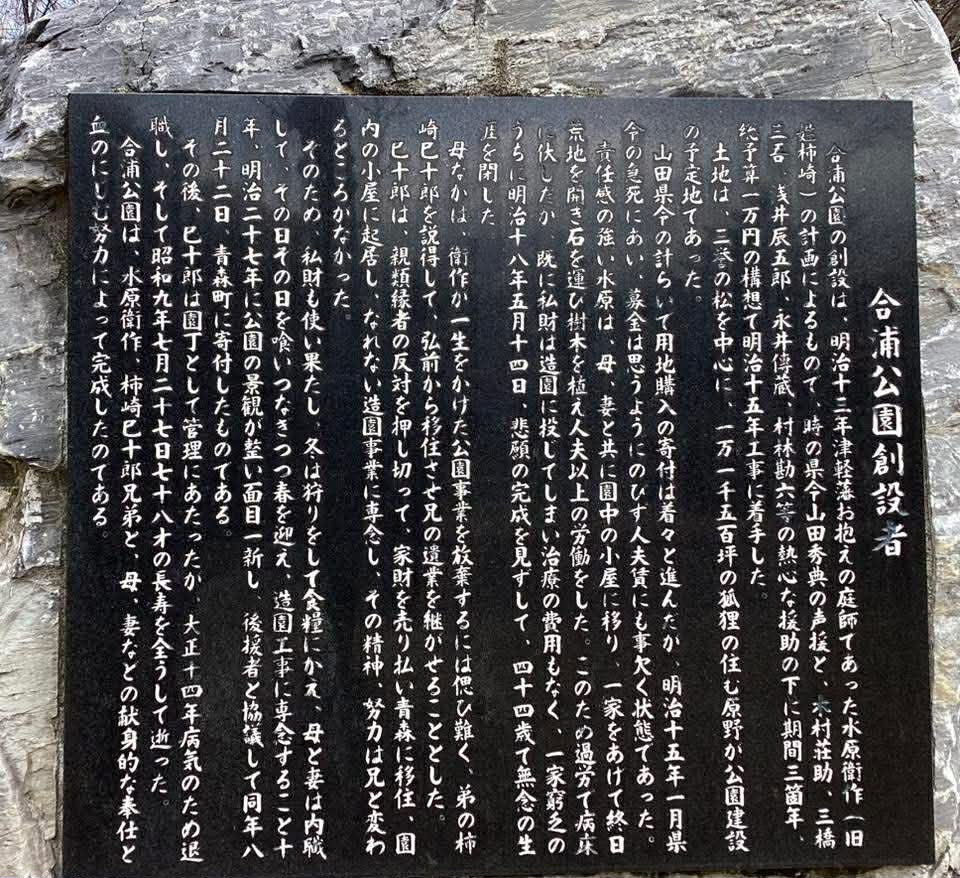 合浦公園創設者
合浦公園の創設は、明治十三年津軽藩お抱えの庭師てあった水原衛作（旧
姓柿崎）の計画によるものて、時の県令山田秀典の声援と、木村荘助、三橋
三吾、浅井辰五郎、永井傳蔵、村林勘六等の熱心な援助の下に期間三箇年、
総予算一万円の構想て明治十五年工事に着手した。
土地は、三誉の松を中心に、一万一千五百坪の狐狸の住む原野が公園建設
の予定地てあった。
山田県令の計らいて用地購入の寄付は着々と進んだか、明治十五年一月県
令の急死にあい、募金は思うようにのびず人夫賃にも事欠く状態であった。
責任感の強い水原は、母、妻と共に園中の小屋に移り、一家をあけて終日
荒地を開き石を運び樹木を植え人夫以上の労働をした。このため過労て病床
に伏したか、既に私財は造園に投してしまい治療の費用もなく、一家窮乏の
うちに明治十八年五月十四日、悲願の完成を見すして、四十四歳て無念の生
涯を閉した
母なかは、衛作か一生をかけた公園事業を放棄するには偲ひ難く、弟の柿
崎巳十郎を説得して、弘前から移住させ兄の遺業を継がせることとした。
巳十郎は、親類縁者の反対を押し切って、家財を売り払い青森に移住、園
内の小屋に起居し、なれない造園事業に専念し、その精神、努力は兄と変わ
るところかなかった。
そのため、私財も使い果たし、冬は狩りをして食糧にかえ、母と妻は内職
して、その日その日を喰いつなきつつ春を迎え、造園工事に専念すること十
年、明治二十七年に公園の景観が整い面目一新し、後援者と協議して同年八
月二十二日、青森町に寄付したものである。
その後、巳十郎は園丁として管理にあたったか、大正十四年病気のため退
職し、そして昭和九年七月二十七日七十八才の長寿を全うして逝った。
合浦公園は、水原衛作、柿崎巳十郎兄弟と、母、妻などの献身的な奉仕と
血のにじむ努力によって完成したのてある。